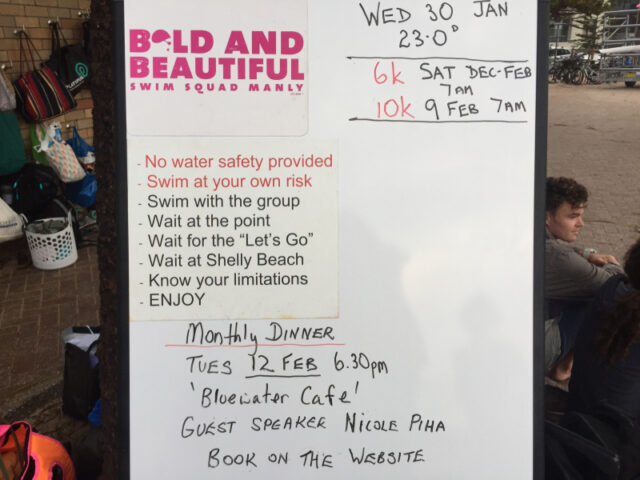 BOLD AND
BEAUTIFUL
SWIM SQUAD MANLY
WED 30 JAN
23.0°
6k SAT DEC-FEB
7AM
10k 9 FEB 7AM
- No water safety provided
- Swim at your own risk
- Swim with the group
- Wait at the point
- Wait for the “Let's Go”
- Wait at Shelly Beach
- Know your limitations
- ENJOY
Monthly DINNER
TUES 12 FEB 6.30pm
'Bluewater Cafe'
GUEST SPEAKER NICOLE PIHA
BOOK ON THE WEBSITE